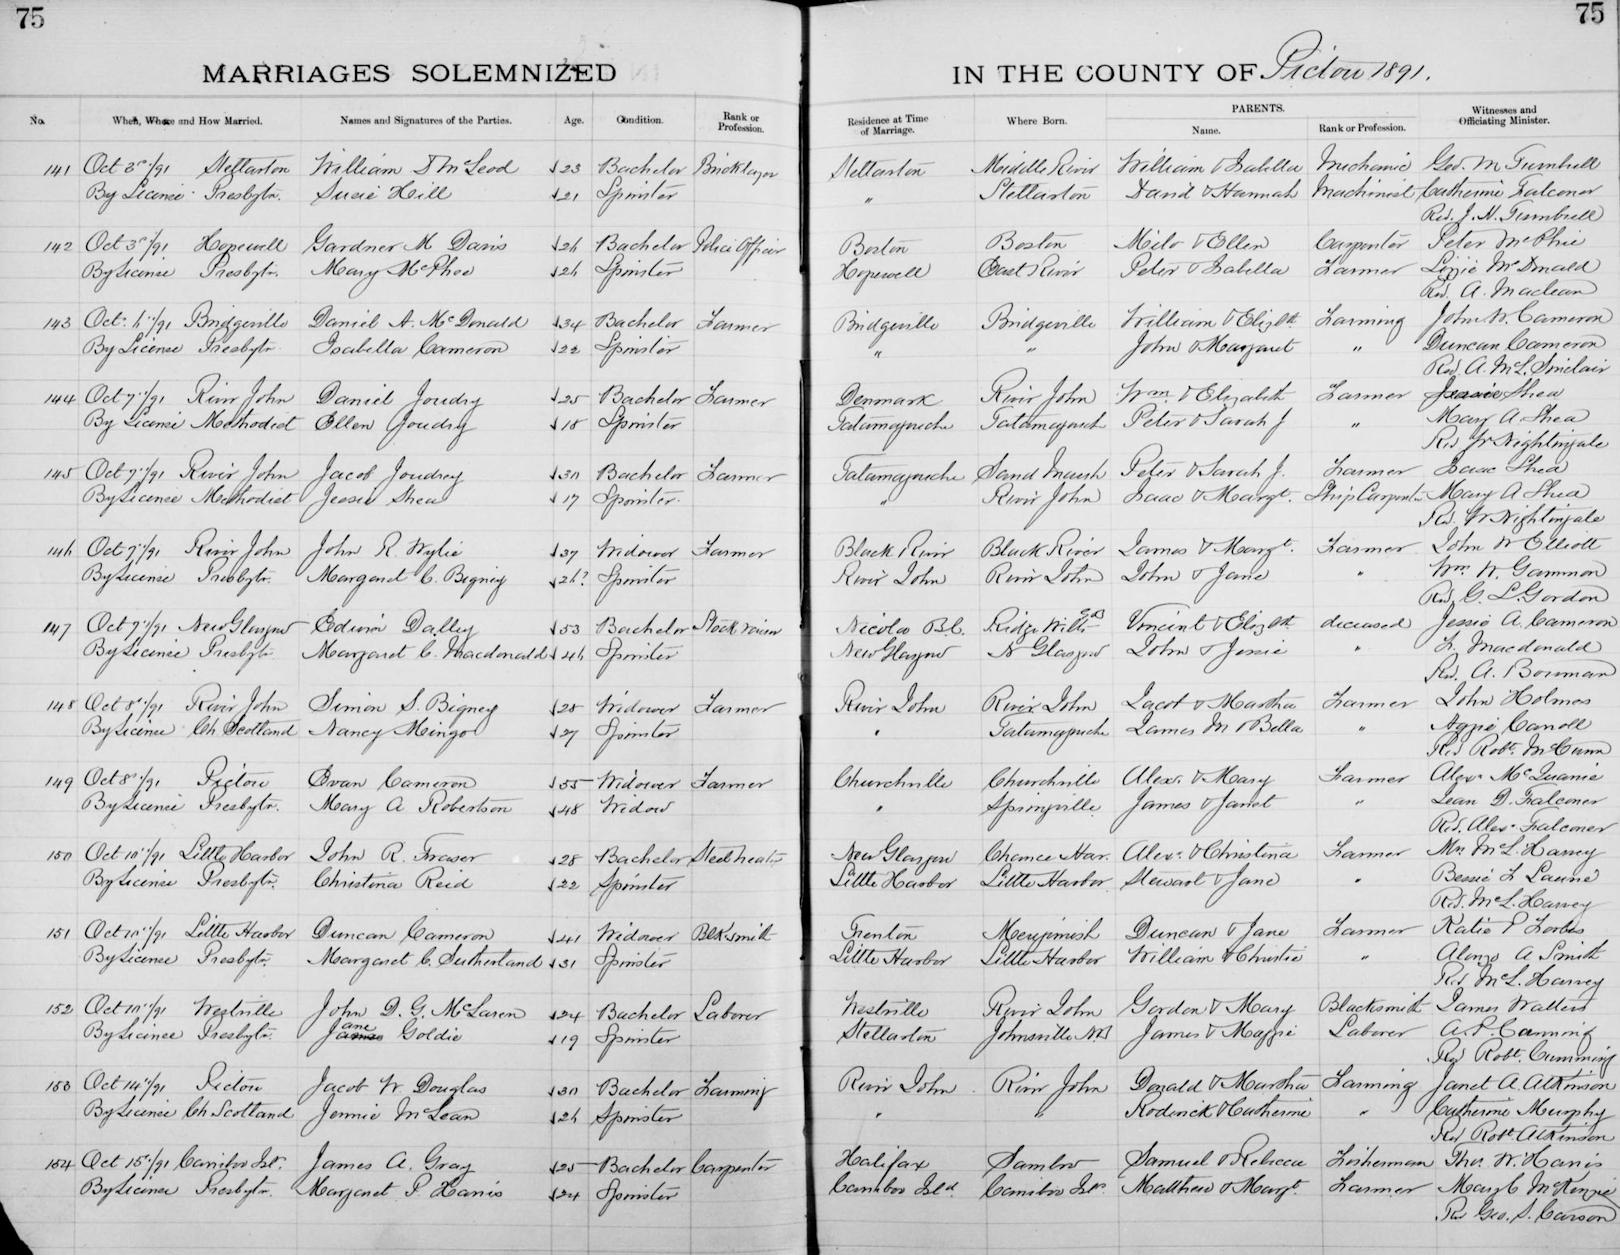 75
75
MARRIAGES SOLEMNIZED
IN THE COUNTY OF Pictou 1891.
No. When, Where and How Married. Names and Signatures of the Parties. Age. Condition. Rank or Profession. Residence at Time of Marriage. Where Born. PARENTS. Name. Rank or Profession. Witnesses and Officiating Minister.
141 Oct 3"/91 Stellarton William D McLeod 23 Bachelor Bricklayer Stellarton Middle River William & Isabella Mechanic Geo. M Turnbull
By License Presbytn. Susie Hill 21 Spinster " Stellarton David & Hannah Machinist Catherine Falconer
Rev. J. H. Turnbull
142 Oct 3"/91 Hopewell Gardner M Davis 26 Bachelor Police Officer Boston Boston Milo & Ellen Carpenter Peter McPhie
By License Presbytn. Mary McPhee 26 Spinster Hopewell East River Peter & Isabella Farmer Lizzie McDonald
Rev. A. Maclean
143 Oct. 6"/91 Bridgeville Daniel A. McDonald 34 Bachelor Farmer Bridgeville Bridgeville William & Elizbth Farming John W. Cameron
By License Presbytn. Isabella Cameron 22 Spinster " " John & Margaret " Duncan Cameron
Rev. A. McL. Sinclair
144 Oct 7"/91 River John Daniel Joudry 25 Bachelor Farmer Denmark River John Wm. & Elizabeth Farmer Jessie Shea
By License Methodist Ellen Joudry 18 Spinster Tatamagouche Tatamagouch Peter & Sarah J " Mary A Shea
Rev W Nightingale
145 Oct 7"/91 River John Jacob Joudrey 30 Bachelor Farmer Tatamagouche Sand Marsh Peter & Sarah J. Farmer Isaac Shea
By License Methodist Jessie Shea 17 Spinster. " River John Isaac & Margt. Ship Carpenter Mary A Shea
Rev. W Nightingale
146 Oct 7"/91 River John John R. Wylie 37 Widower Farmer Black River Black River James & Margt. Farmer John W Elliott
By License Presbytn. Margaret C. Bigney 26? Spinster River John River John John & Jane " Wm. W. Gammon
Rev. G. L. Gordon
147 Oct 7"/91 New Glasgow Edwin Dalley 53 Bachelor Stock raiser Nicola B.C. Ridge Wilts Eng Vincent & Elizbth deceased Jessie A. Cameron
By License Presbytn Margaret C. Macdonald 46 Spinster New Glasgow N Glasgow John & Jessie " Macdonald
Rev. A. Bowman
148 Oct 8"/91 River John Simon S. Bigney 28 Widower Farmer River John River John Jacob & Martha Farmer John Holmes
By License Ch Scotland Nancy Mingo 27 Spinster " Tatamagouche James M & Bella " Aggie Carroll
Rev Robt. McCunn
149 Oct 8"/91 Pictou Evan Cameron 55 Widower Farmer Churchville Churchville Alex. & Mary Farmer Alex. McQuarrie
By License Presbytn. Mary A Robertson 48 Widow " Springville James & Janet " Jean D. Falconer
Rev. Alex. Falconer
150 Oct 10"/91 Little Harbor John R. Fraser 28 Bachelor Steel heater New Glasgow Chance Har. Alex. & Christina Farmer Mrs McL. Harvey
By License Presbytn. Christina Reid 22 Spinster Little Harbor Little Harbor Stewart & Jane " Bessie
Rev. McL. Harvey
151 Oct 10"/91 Little Harbor Duncan Cameron 41 Widower Blksmith Trenton Merigomish Duncan & Jane Farmer Katie P Forbes
By License Presbytn. Margaret C. Sutherland 31 Spinster Little Harbor Little Harbor William & Christie " Alonzo A Smith
Rev McL. Harvey
152 Oct 10"/91 Westville John D. G. McLaren 24 Bachelor Laborer Westville River John Gordon & Mary Blacksmith James Walters
By License Presbytn. Jane Goldie 19 Spinster Stellarton Johnsville NB James & Maggie Laborer A. P. Canning
Rev Robt. Cumming
153 Oct 14"/91 Pictou Jacob W. Douglas 30 Bachelor Farming River John River John Donald & Martha Farming Janet A Atkinson
By License Ch Scotland Jennie McLean 26 Spinster " " Roderick & Catherine " Catherine Murphy
Rev Robt Atkinson
154 Oct 15"/91 Caribou Isl. James A. Gray 25 Bachelor Carpenter Halifax Sambro Samuel & Rebecca Fisherman Thos. W. Harris
By License Presbytn. Margaret P Harris 24 Spinster Caribou Isld Caribou Isl. Matthew & Margt. Farmer Mary C McKenzie
Rev Geo. S. Carson